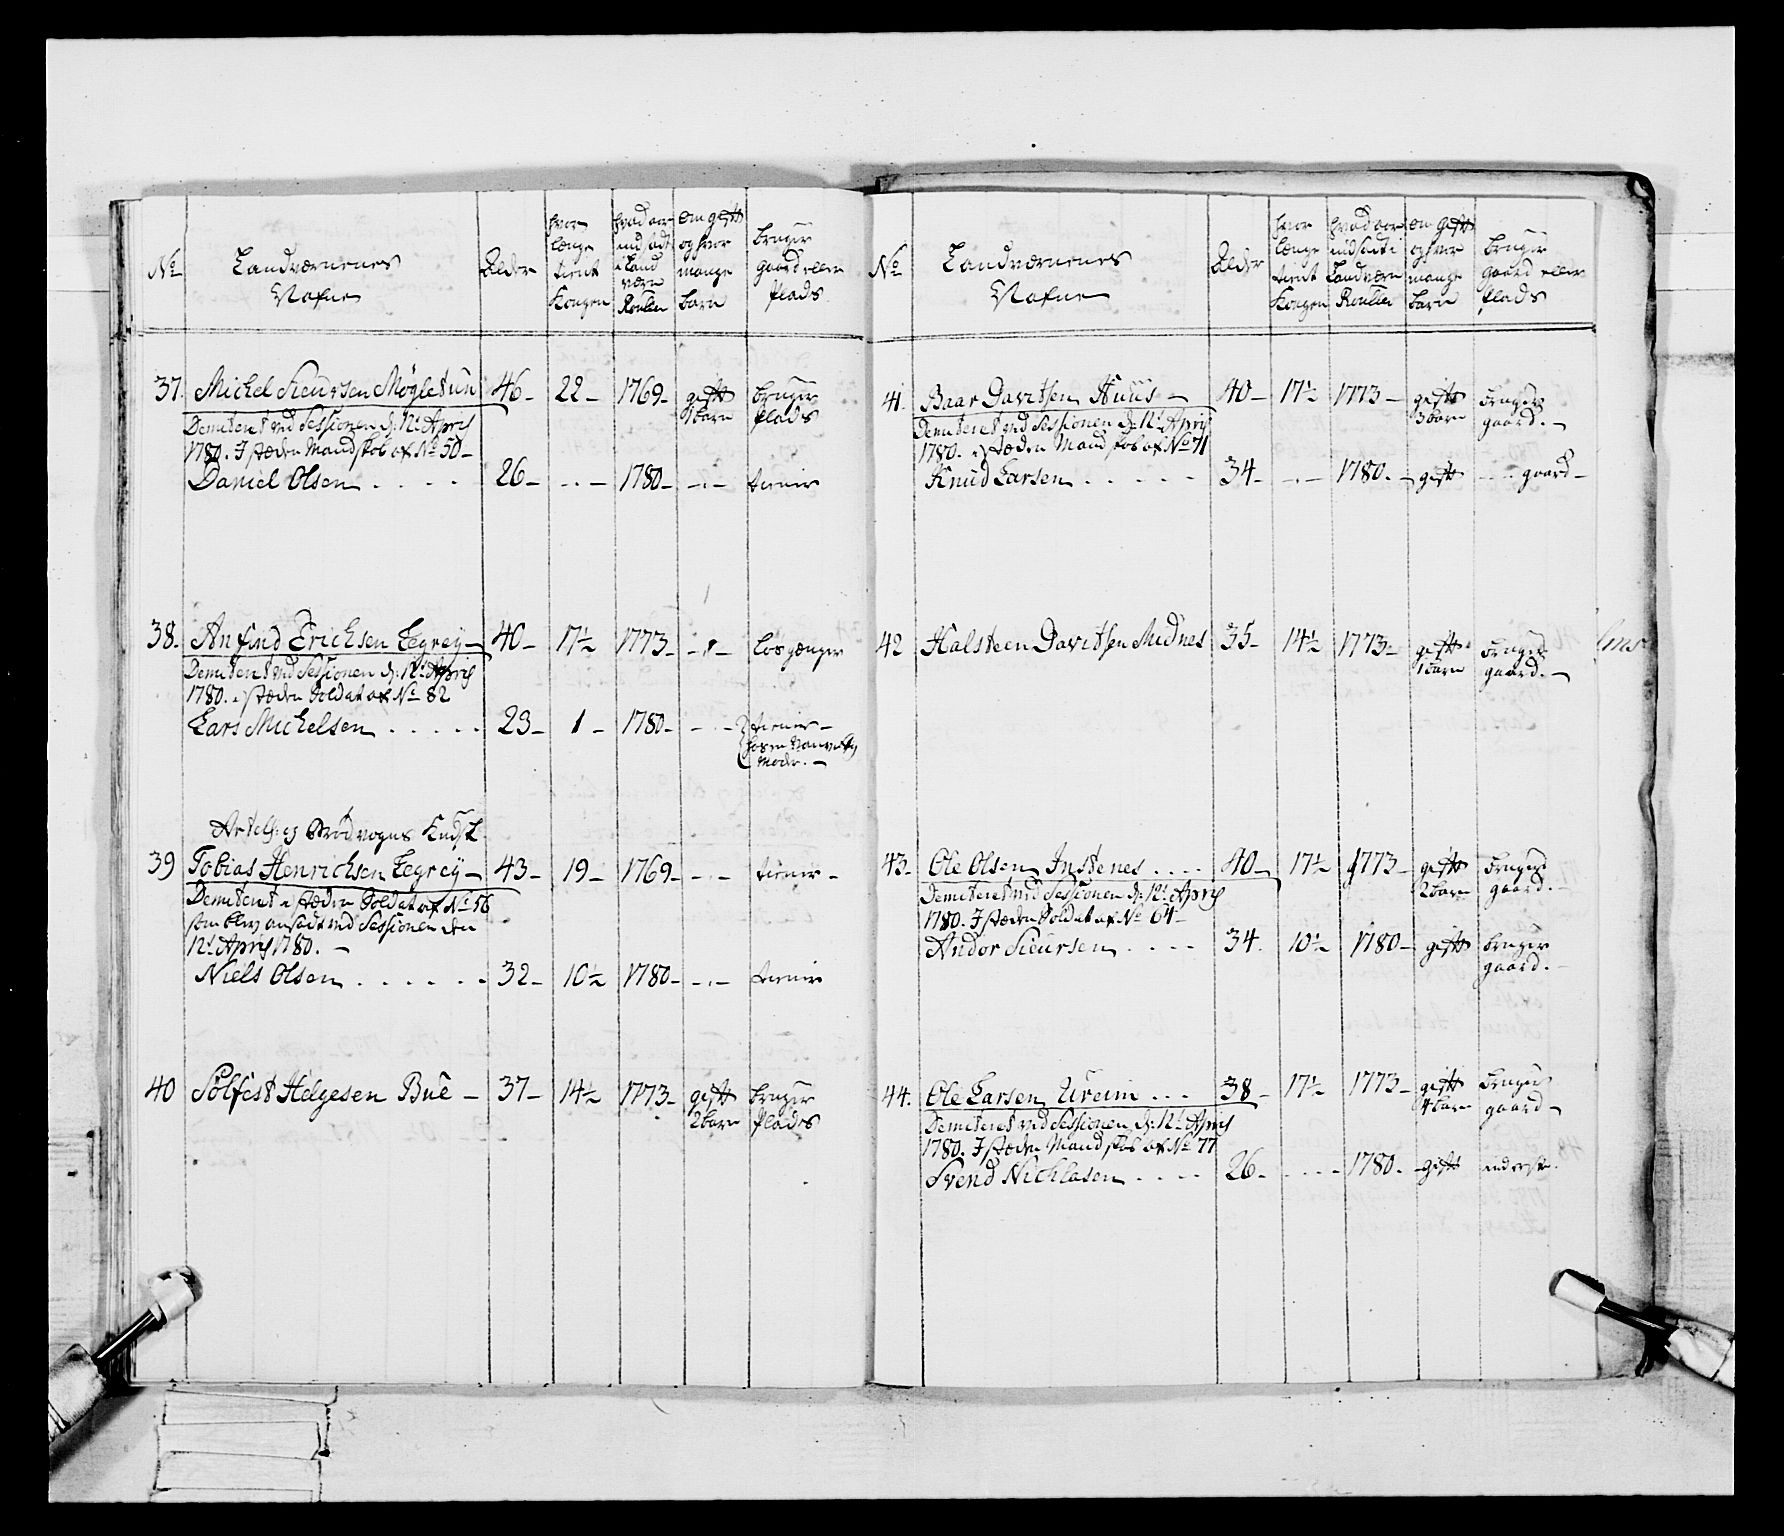 No
Landværnenes
Nafne
Alder
hvor
længe
tient
Kongen
hvad aar
indsadt
i Land
værn
Roullen
om gift
og hvor
mange
barn
bruger
gaard eller
Plads
37. Michel Sieursen Møgletun 46- 22- 1769- gift bruger
1 barn Plads
Demiteret ved Sessionen d: 12t April
1780. I stæden Mandskab af No 50-
Daniel Olsen . . . . 26- . . - 1780- -.- tienir
38. Anfind Erichsen Tegrey- 40- 17½ 1773- -.- løsgænger
Demiteret ved Sessionen d: 12t April
1780. i stæden Soldat af No 82
Lars Michelsen . . . . . 23- 1- 1780- -.- tienir-
hosen
Moder. -
39 Tobias Henrichsen Tegrey- 43- 19- 1769- -.- tienir-
Demiteret i stæden Soldat af No 56
som blev ansadt ved Sessionen den
12t April 1780. -
Niels Olsen . . . . . . 32- 10½ 1780- -.- tienir
40 Sølfest Helgesen Bue - 37- 14½ 1773- gift bruger
2 barn Plads
No
Landværnenes
Nafne
Alder
hvor
længe
tient
Kongen
hvad aar
indsadt i
Landværn
Roullen
om gift
og hvor
mange
barn
bruger
gaard eller
Plads
41. Baar Davitsen Huus - 40- 17½ 1773- gift bruger
3 barn gaard. -
Demiteret ved Sessionen d: 12t April
1780. i stæden Mandskab af No 71
Knud Larsen . . . . . 34- -.- 1780. - gift - . . gaard-
42 Halsteen Davitsen Midnes 35- 14½ 1773- gift bruger
1 barn gaard. -
43. Ole Olsen Instenes . . . . 40- 17½ 1773- gift bruger
2 barn gaard. -
Demiteret ved Sessionen d: 12t April
1780. I stæden Soldat af No 64-
Andor Sieursen . . . . 34. 10½ 1780- gift bruger
gaard. -
44. Ole Larsen Ureim . . . 38- 17½ 1773- gift bruger
4 barn gaard-
Demiteret ved Sessionen d: 12t April
1780. I stæden Mandskab af No 77
Svend Nichlasen . . . . 26- . . . - 1780. - gift inderste.